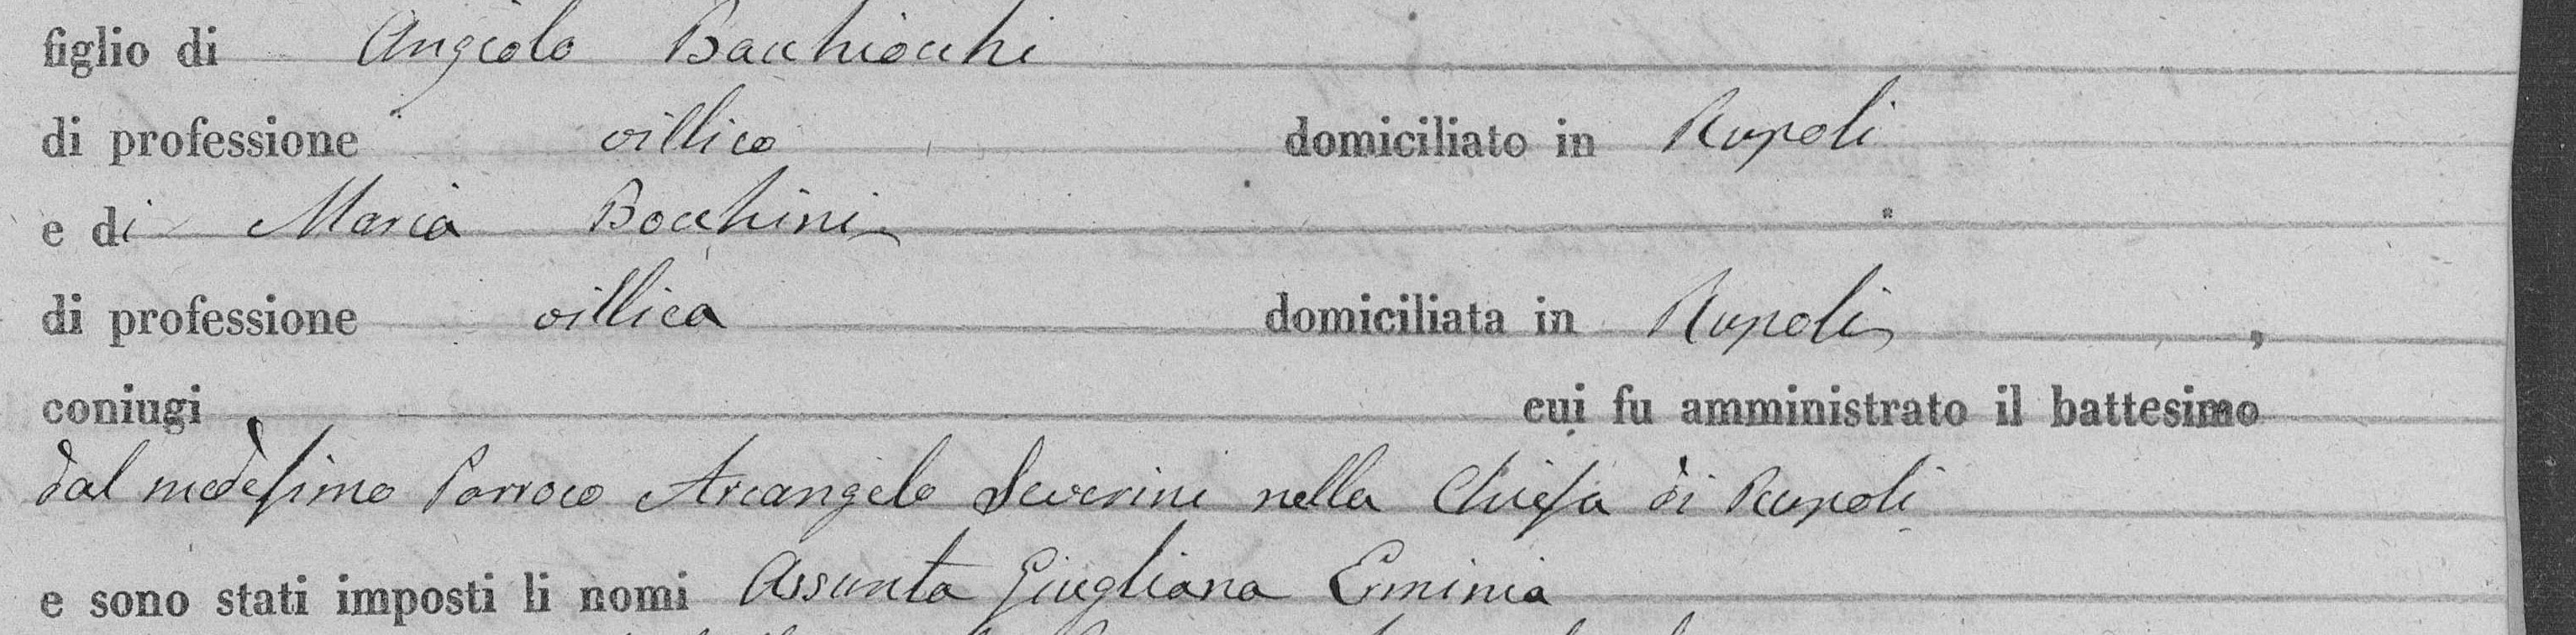 figlio di Angiolo Bacchiocchi
di professione villico domiciliato in Rupoli
e di Maria Bocchini
di professione villica domiciliata in Rupoli,
coniugi cui fu amministrato il battesimo
dal medesimo Parroco Arcangelo Severini nella Chiesa di Rupoli
e sono stati imposti li nomi Assunta Giugliana Erminia